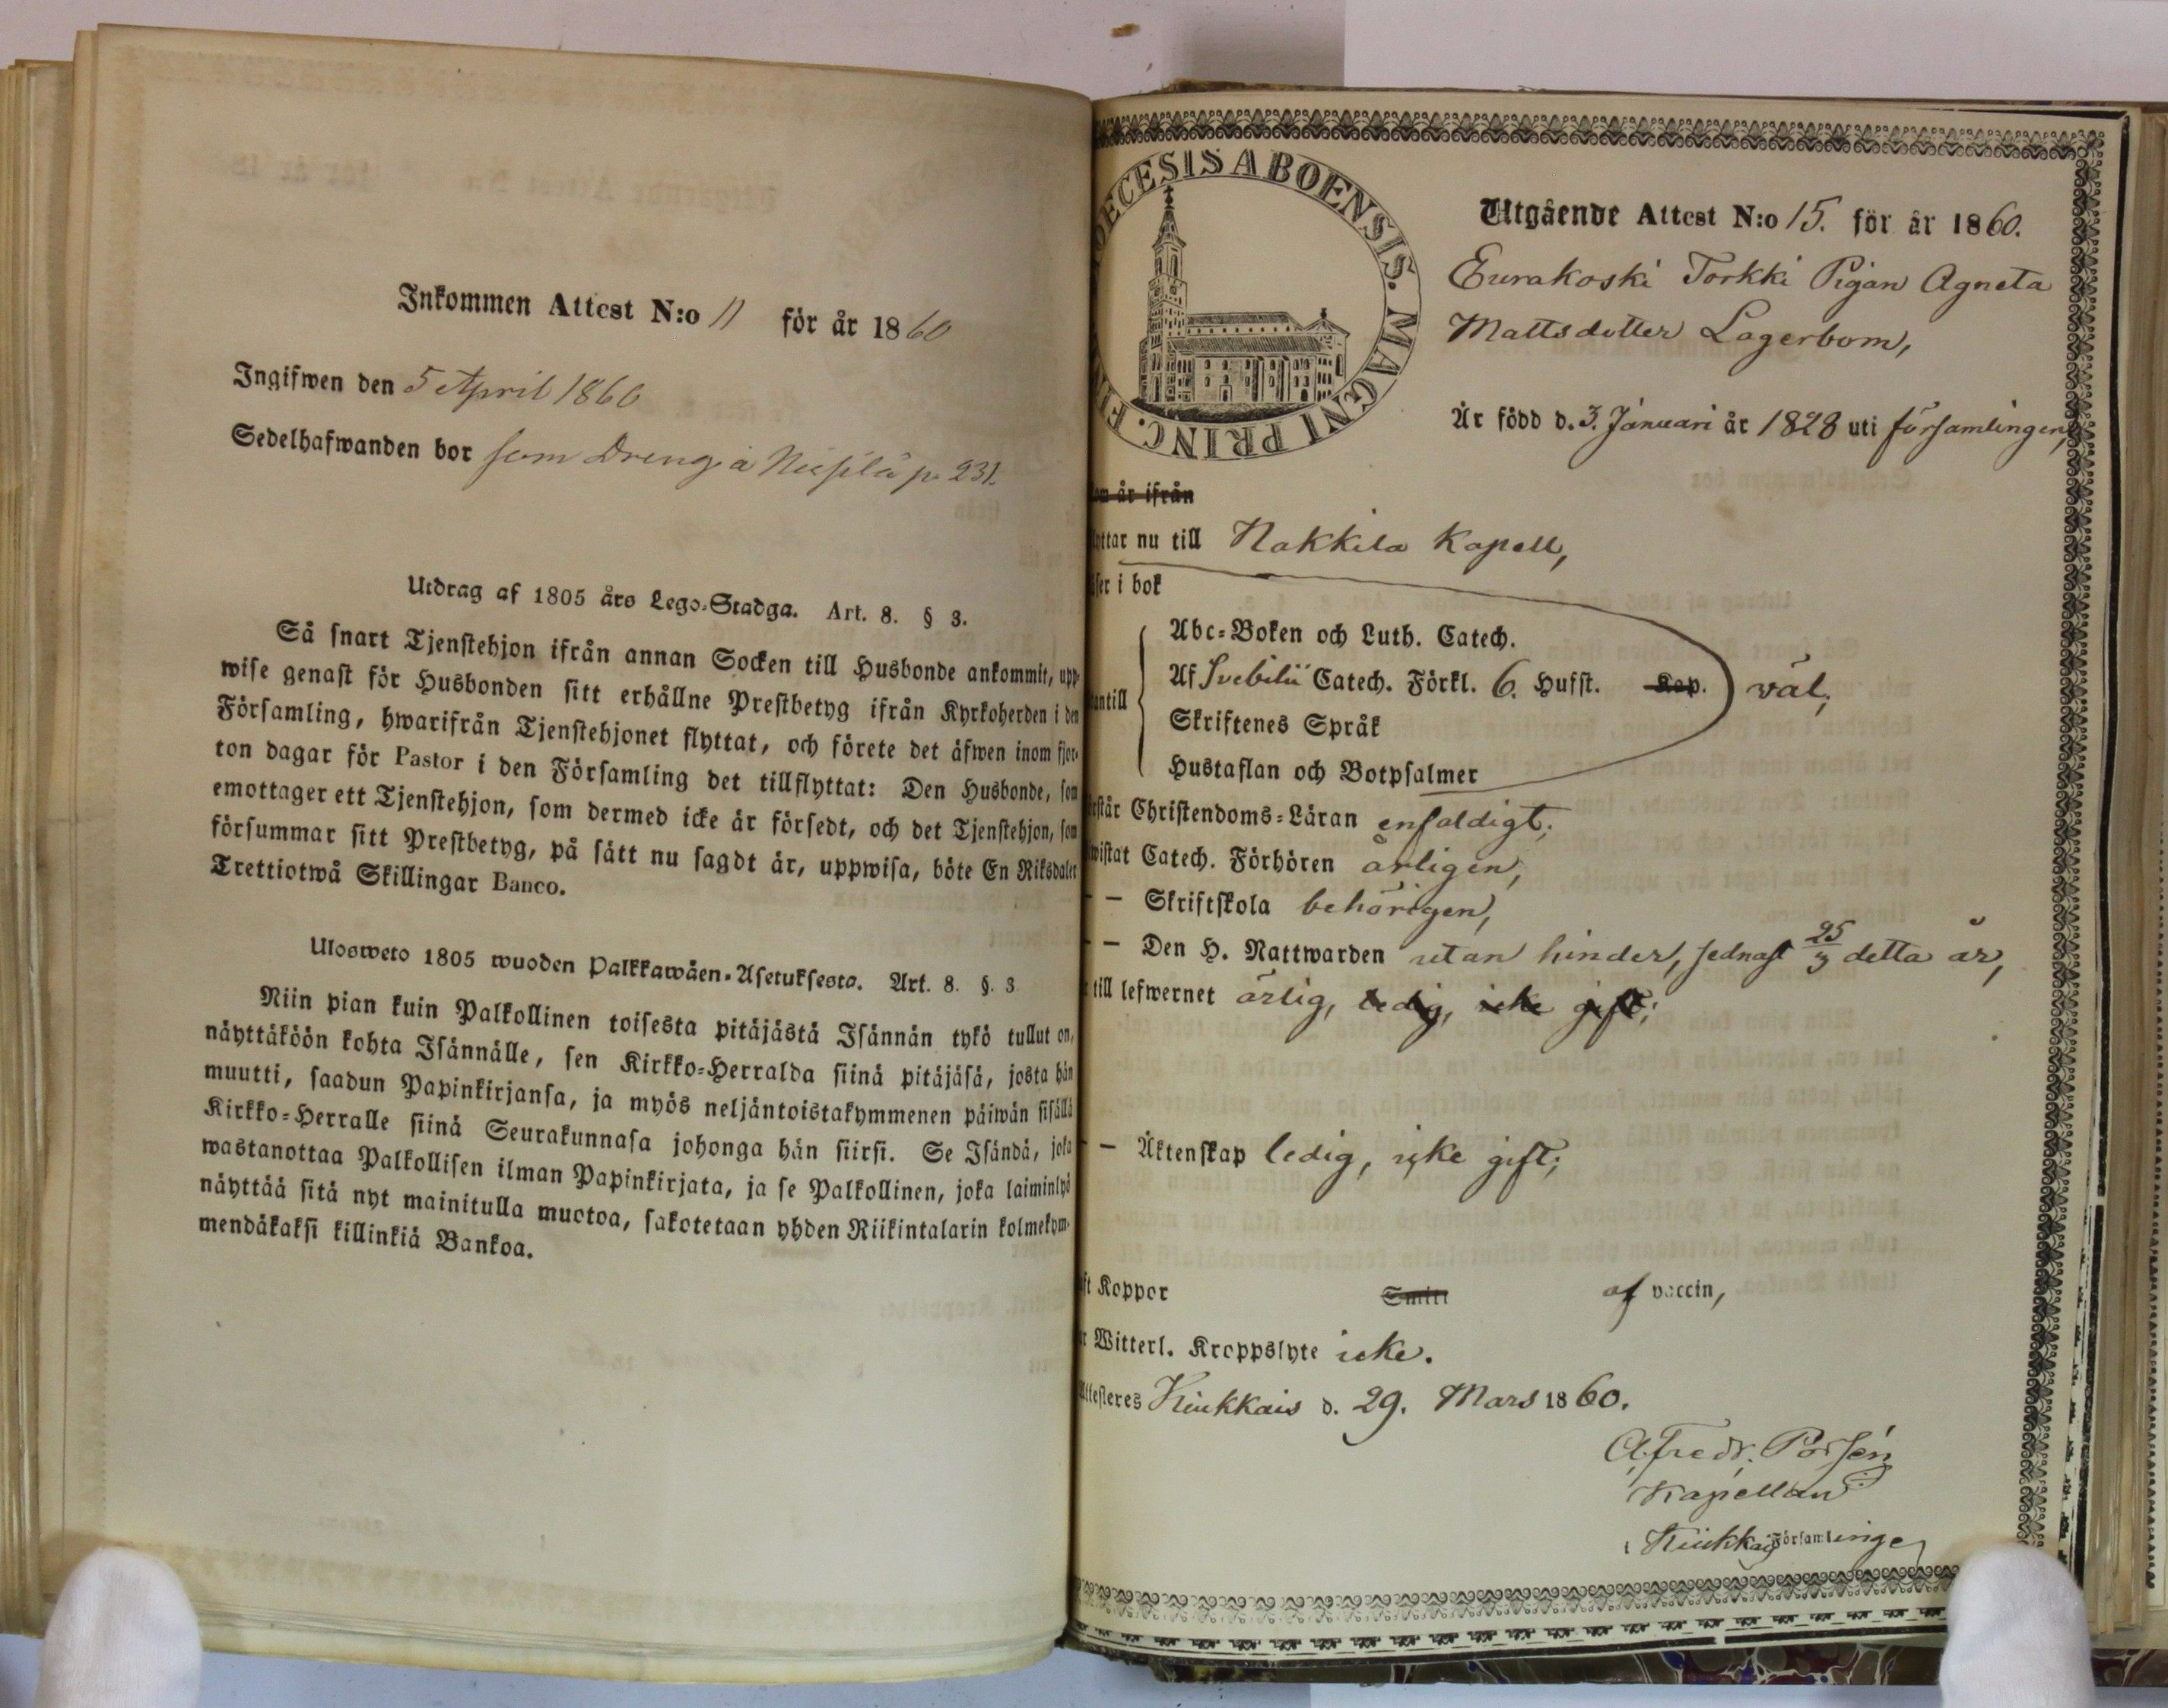 Inkommen Attest N:o 11 för år 1860
Ingifwen den 5 April 1860
Sedelhafwanden bor som Dreng å p. 231.
Utdrag af 1805 års Lego-Stadga. Art. 8. § 3.
Så snart Tjenstehjon ifrån annan Socken till Husbonde ankommit, upp-
wise genast för Husbonden sitt erhållne Prestbetyg ifrån Kyrkoherden i den
Församling, hwarifrån Tjenstehjonet flyttat, och förete det äfwen inom fjor-
ton dagar för Pastor i den Församling det tillflyttat: Den Husbonde, som
emottager ett Tjenstehjon, som dermed icke är försedt, och det Tjenstehjon, som
försummar sitt Prestbetyg, på sätt nu sagdt är, uppwisa, böte En Riksdaler
Trettiotwå Skillingar Banco.
Ulosweto 1805 wuoden Palkkawäen-Asetuksesta. Art. 8. §. 3
Niin pian kuin Palkollinen toisesta pitäjästä Isännän tykö tullut on,
näyttäköön kohta Isännälle, sen Kirkko-Herralda siinä pitäjäsä, josta hän
muutti, saadun Papinkirjansa, ja myös neljäntoistakymmenen päiwän sisällä
Kirkko-Herralle siinä Seurakunnasa johonga hän siirsi. Se Isändä, joka
wastanottaa Palkollisen ilman Papinkirjata, ja se Palkollinen, joka laiminlyö
näyttää sitä nyt mainitulla muotoa, sakotetaan yhden Riikintalarin kolmekym-
mendäkaksi killinkiä Bankoa.
ECESIS ABOENSIS. MAGNI PRINC. F
Utgående Attest N:o 15. för år 1860.
Eurakoski Torkki Pigan Agneta
Mattsdotter Lagerbom,
Är född d. 3. Januari år 1828 uti församlingen,
om är ifrån
yttar nu till Nakkila Kapell,
äser i bok
Abc-Boken och Luth. Catech.
antill Af Svebilii Catech. Förkl. 6. Hufst. Kap. väl,
Skriftenes Språk
Hustaflan och Botpsalmer
rstår Christendoms-Läran enfaldigt;
wistat Catech. Förhören årligen,
– – Skriftskola behörigen,
– – Den H. Nattwarden utan hinder, sednast 25/3 detta år,
till lefwernet ärlig, ledig, icke gift;
– – Äktenskap ledig, icke gift;
ft Koppor Smitt af vaccin,
r Witterl. Kroppslyte icke.
Attesteres Kiukkais d. 29. Mars 1860.
Alfredr. Porsén
Kapellan
i Kiukkais Församlinge